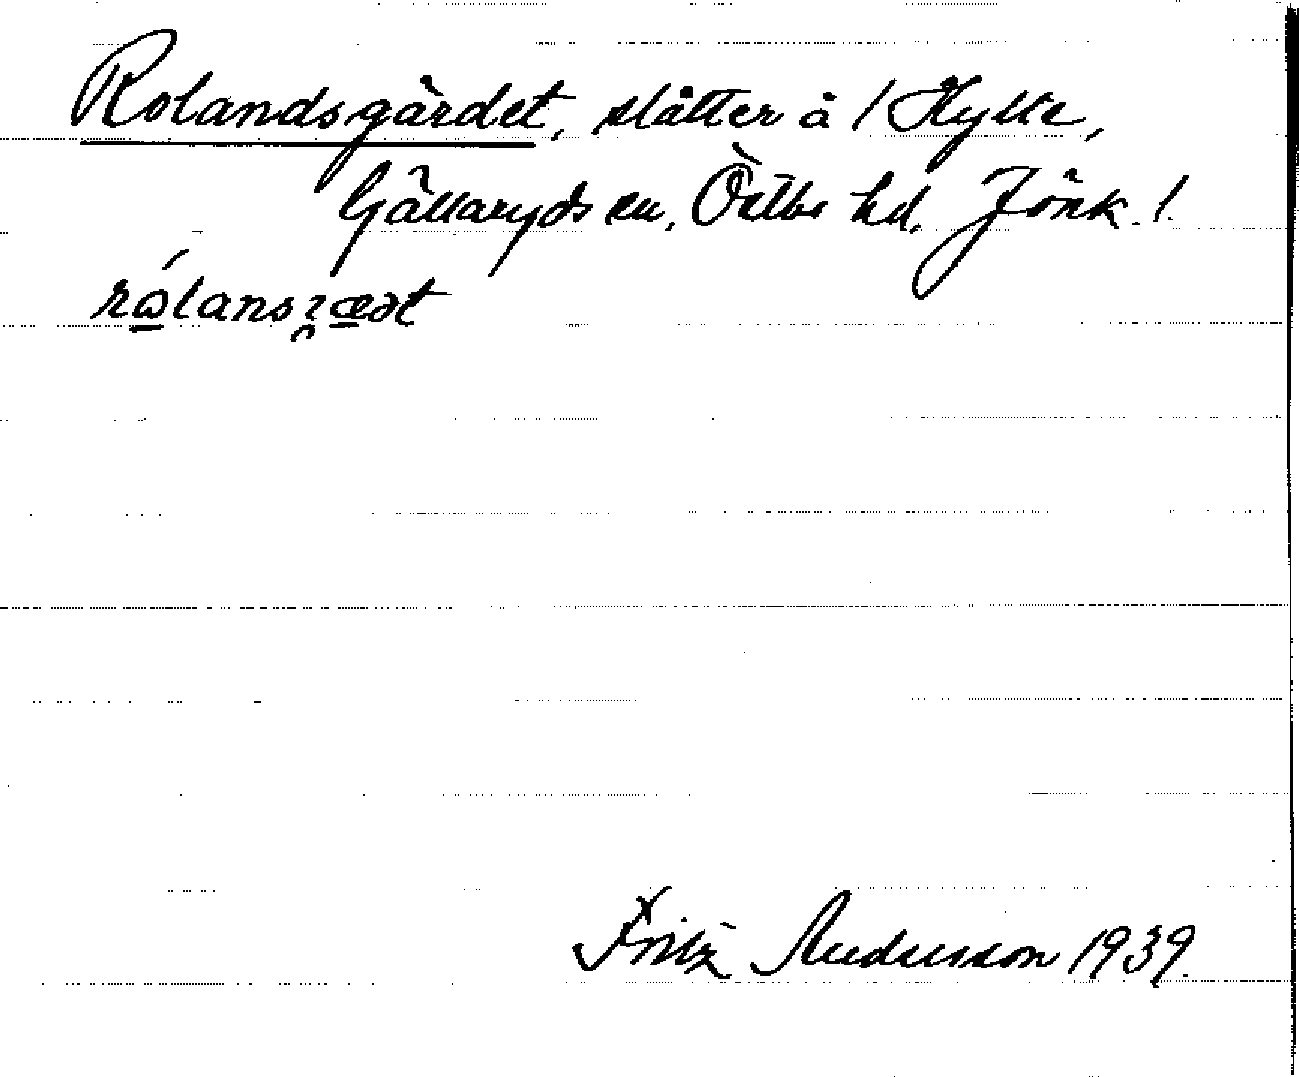 Rolandsgärdet, slåtter å /Hylte,
Gällaryds sn, Östbo hd. Jönk. l.
Fritz Andersson 1939.